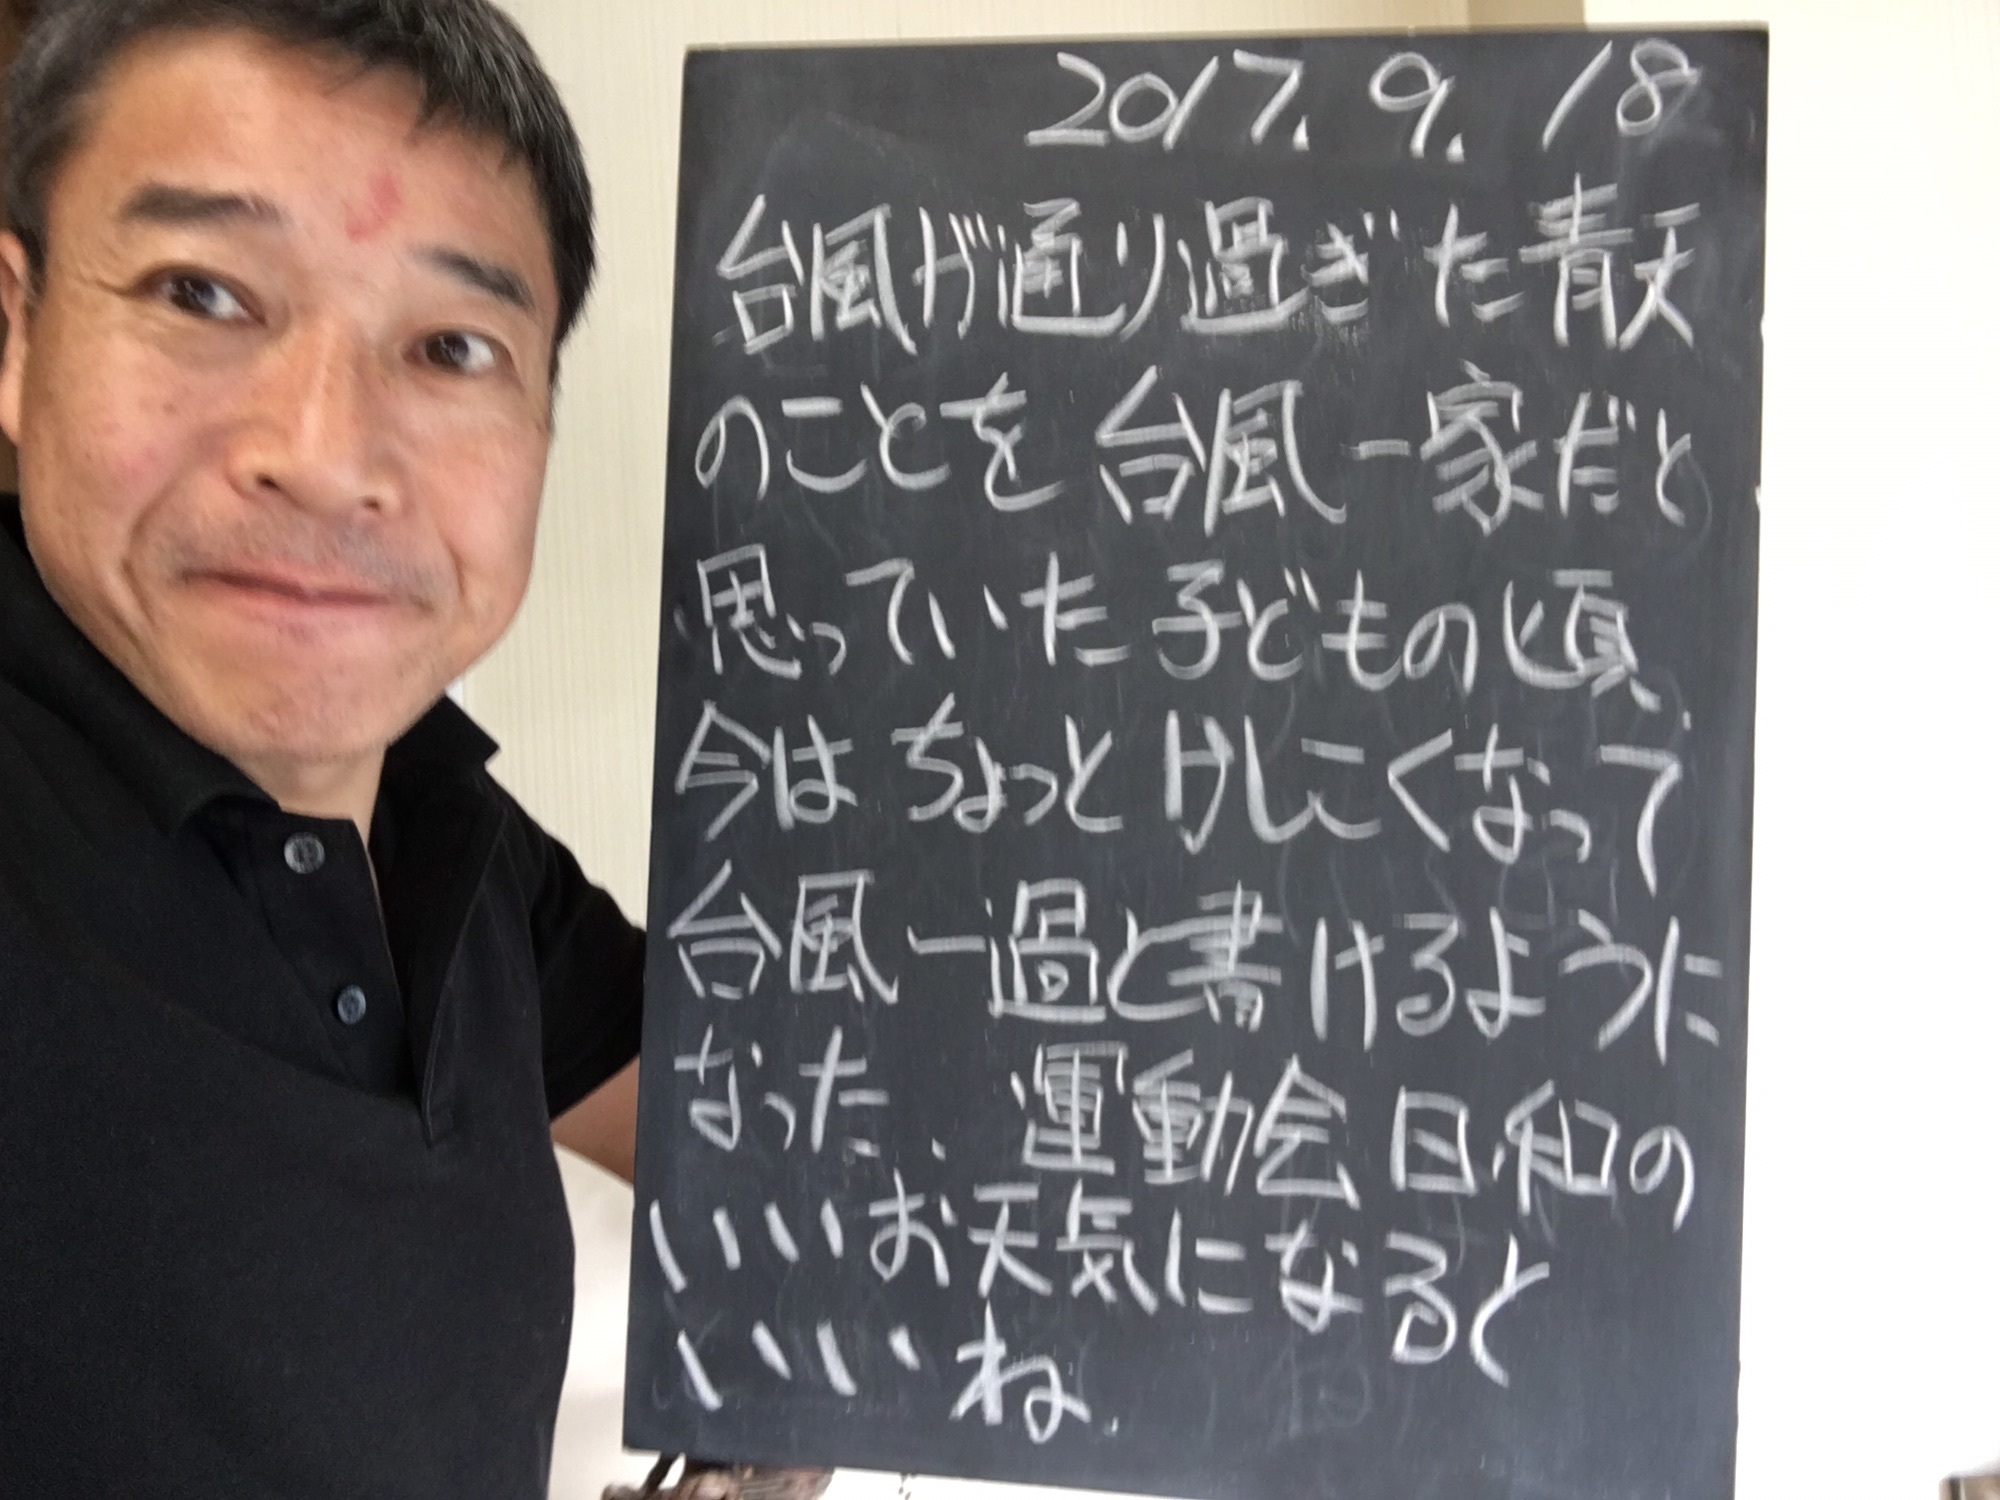 2017. 9. 18
台風が通り過ぎた青天
のことを台風一家だと
思っていた子どもの頃、
今はちょっとけしこくなって
台風一過と書けるように
なった. 運動会日和の
いいお天気になると
いいね.